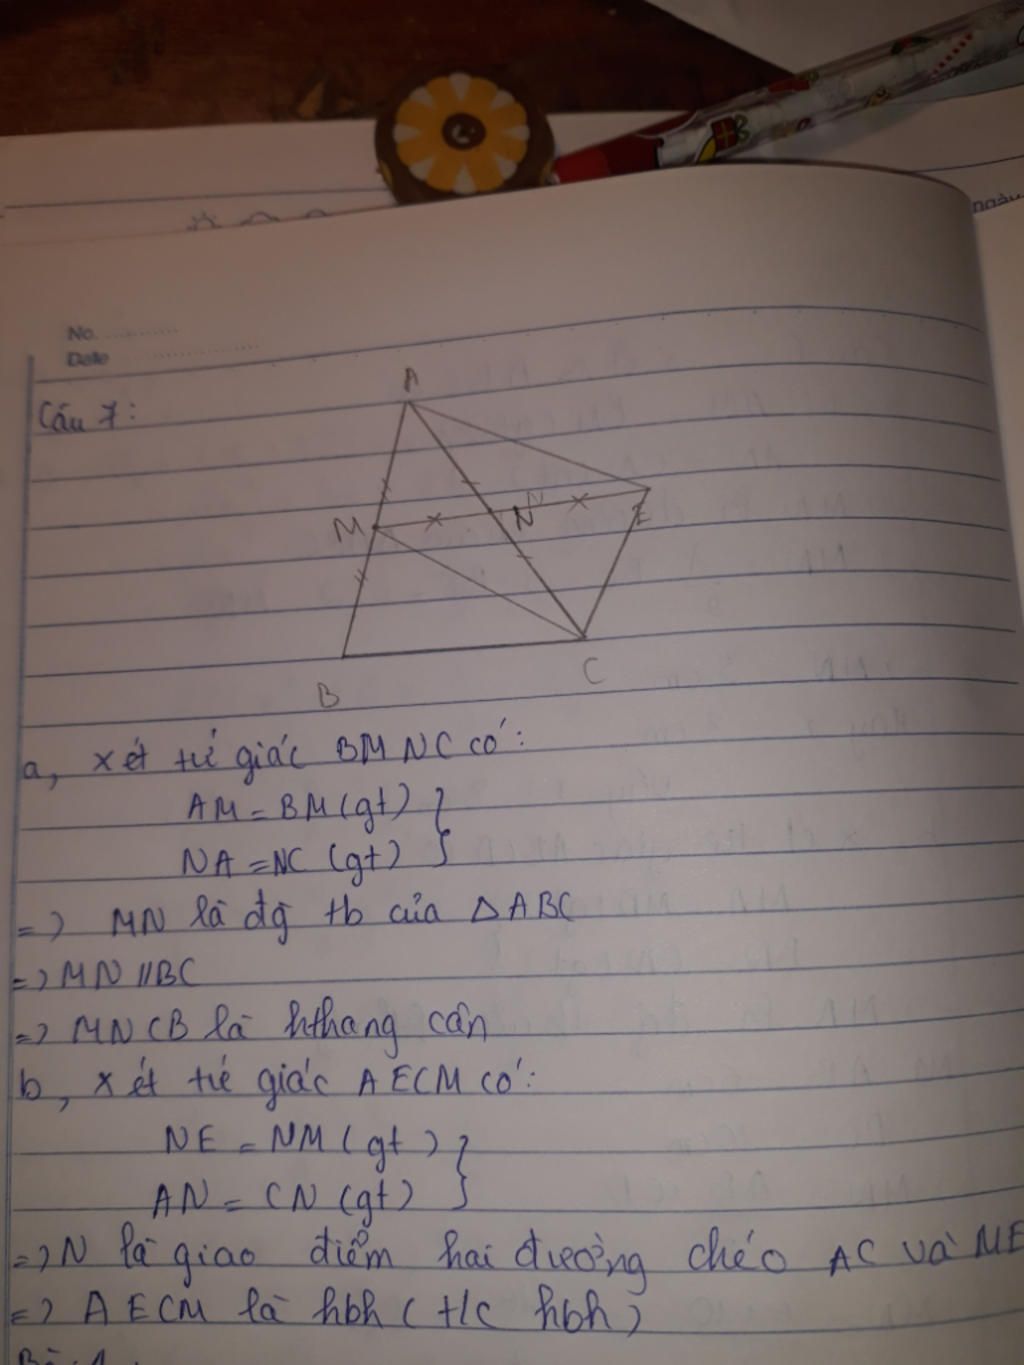 ngày
No.
Date
Câu 7:
A
M
N
E
B
C
a, xét tứ giác BMNC có:
AM = BM (gt) }
NA = NC (gt)
=> MN là đg tb của △ABC
=> MN // BC
=> MNCB là hthang cân
b, xét tứ giác AECM có:
NE = NM (gt) }
AN = CN (gt)
=> N là giao điểm hai đường chéo AC và ME
=> AECM là hbh (t/c hbh)